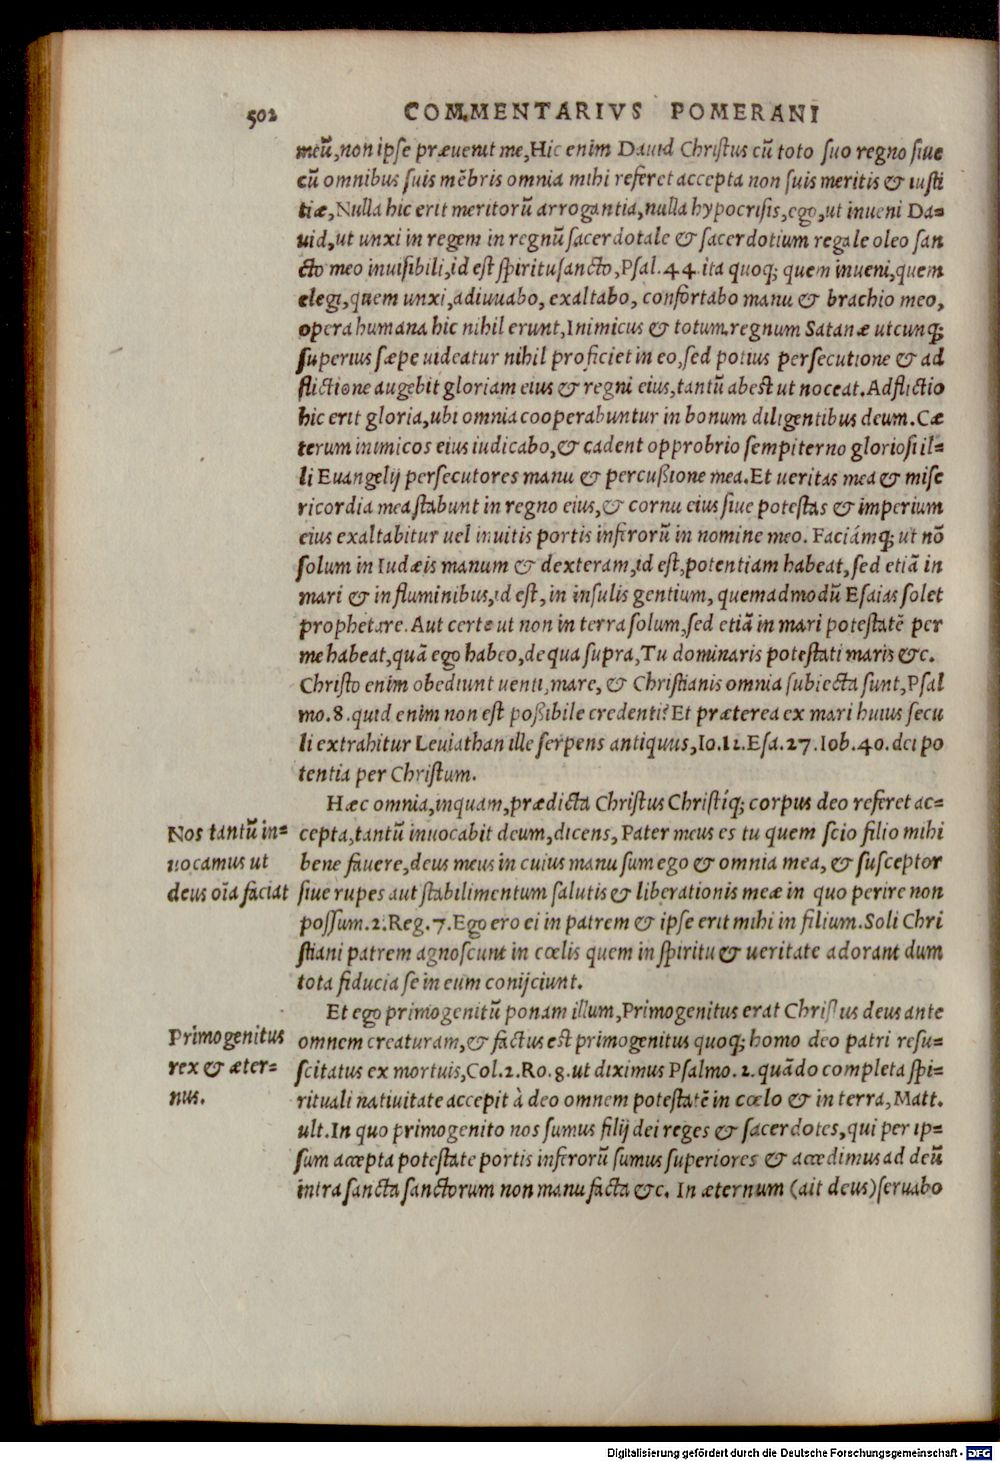 502 COMMENTARIVS POMERANI
meũ, non ipse præuenit me, Hic enim Dauid Christus cũ toto suo regno siue
cũ omnibus suis mẽbris omnia mihi referet accepta non suis meritis & iusti
tiæ, Nulla hic erit meritorũ arrogantia, nulla hypocrisis, ego, ut inueni Da=
uid, ut unxi in regem in regnũ sacerdotale & sacerdotium regale oleo san
cto meo inuisibili, id est spiritusancto, Psal. 44. ita quoq; quem inueni, quem
elegi, quem unxi, adiuuabo, exaltabo, confortabo manu & brachio meo,
opera humana hic nihil erunt, Inimicus & totum regnum Satanæ utcunq;
superius sæpe uideatur nihil proficiet in eo, sed potius persecutione & ad
flictione augebit gloriam eius & regni eius, tantũ abest ut noceat. Adflictio
hic erit gloria, ubi omnia cooperabuntur in bonum diligentibus deum. Cæ
terum inimicos eius iudicabo, & cadent opprobrio sempiterno gloriosi il=
li Euangelij persecutores manu & percußione mea. Et ueritas mea & mise
ricordia mea stabunt in regno eius, & cornu eius siue potestas & imperium
eius exaltabitur uel inuitis portis inferorũ in nomine meo. Faciámq; ut nõ
solum in Iudæis manum & dexteram, id est, potentiam habeat, sed etiã in
mari & in fluminibus, id est, in insulis gentium, quemadmodũ Esaias solet
prophetare. Aut certe ut non in terra solum, sed etiã in mari potestatẽ per
me habeat, quã ego habeo, de qua supra, Tu dominaris potestati maris &c.
Christo enim obediunt uenti, mare, & Christianis omnia subiecta sunt, Psal
mo. 8. quid enim non est poßibile credenti? Et præterea ex mari huius secu
li extrahitur Leuiathan ille serpens antiquus, Io. 12. Esa. 27. Iob. 40. dei po
tentia per Christum.
Hæc omnia, inquam, prædicta Christus Christíq; corpus deo referet ac=
Nos tantũ in=
uocamus ut
deus oĩa faciat
cepta, tantũ inuocabit deum, dicens, Pater meus es tu quem scio filio mihi
bene fauere, deus meus in cuius manu sum ego & omnia mea, & susceptor
siue rupes aut stabilimentum salutis & liberationis meæ in quo perire non
possum. 2. Reg. 7. Ego ero ei in patrem & ipse erit mihi in filium. Soli Chri
stiani patrem agnoscunt in cœlis quem in spiritu & ueritate adorant dum
tota fiducia se in eum conijciunt.
Et ego primogenitũ ponam illum, Primogenitus erat Christus deus ante
Primogenitus
rex & æter=
nus.
omnem creaturam, & factus est primogenitus quoq; homo deo patri resu=
scitatus ex mortuis, Col. 2. Ro. 8. ut diximus Psalmo. 2. quãdo completa spi=
rituali natiuitate accepit à deo omnem potestatẽ in cœlo & in terra, Matt.
ult. In quo primogenito nos sumus filij dei reges & sacerdotes, qui per ip=
sum accepta potestate portis inferorũ sumus superiores & accedimus ad deũ
intra sancta sanctorum non manu facta &c. In æternum (ait deus) seruabo
Digitalisierung gefördert durch die Deutsche Forschungsgemeinschaft - DFG